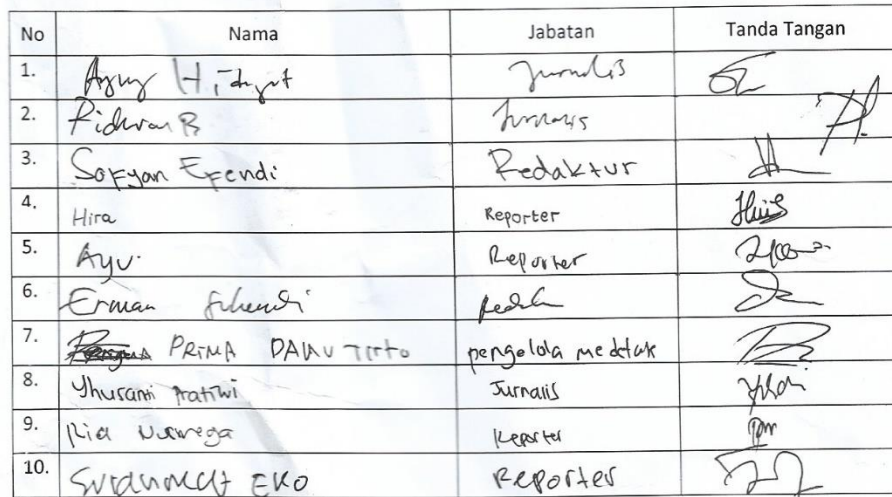 No Nama Jabatan Tanda Tangan
1. Agung Hidayat Jurnalis
2. Ridwan B Jurnalis
3. Sofyan Efendi Redaktur
4. Hira Reporter
5. Ayu. Reporter
6. Erman Suhendi
7. PRIMA DANU TIRTO pengelola medtak
8. Yhusanti Pratiwi Jurnalis
9. Ria Reporter
10. EKO Reporter